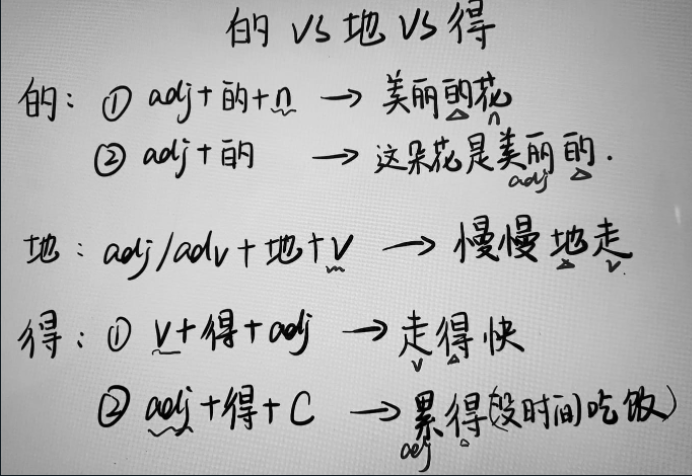 的 VS 地 VS 得
的：① adj+的+n → 美丽的花
n
② adj+的 → 这朵花是美丽的.
adj
地：adj/adv+地+v → 慢慢地走
v
得：① v+得+adj → 走得快
v
② adj+得+C → 累得(没时间吃饭)
adj